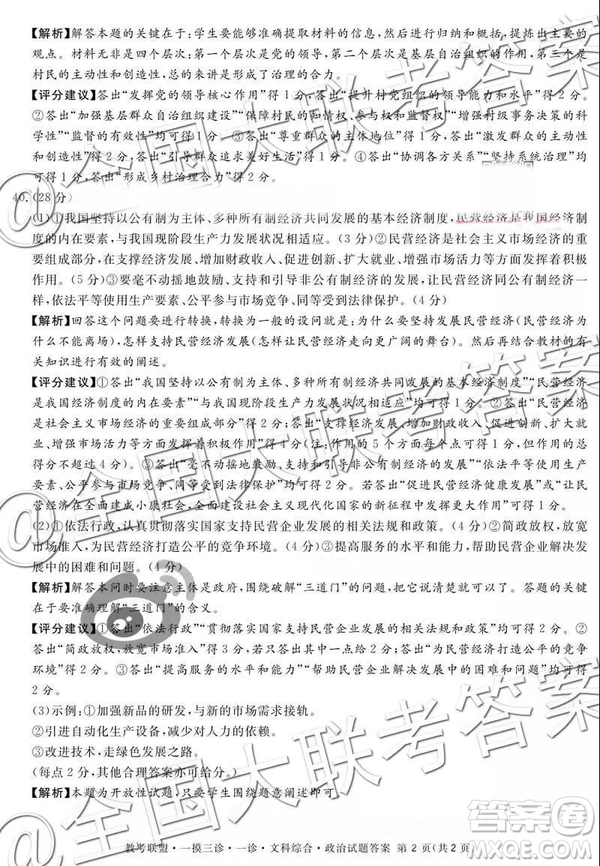 【解析】解答本题的关键在于:学生要能够准确提取材料的信息,然后进行归纳和概括,提炼出主要的
观点。材料无非是四个层次:第一个层次是党的领导,第二个层次是基层自治组织的作用,第三个是
村民的主动性和创造性,总的来讲是形成了治理的合力。
【评分建议】①答出“发挥党的领导核心作用”得1分,答出“提升村党组织的领导能力和水平”得2分。
②答出“加强基层群众自治组织建设”“保障村民的知情权、参与权和监督权”“增强村级事务决策的科
学性”“监督的有效性”均可得1分。③答出“尊重群众的主体地位”得1分,答出“激发群众的主动性
和创造性”得2分,答出“引导群众追求美好生活”得1分。④答出“协调各方关系”“坚持系统治理”均
得1分,答出“形成乡村治理合力”得2分。
40.(28分)
(1)①我国坚持以公有制为主体、多种所有制经济共同发展的基本经济制度,民营经济是我国经济制
度的内在要素,与我国现阶段生产力发展状况相适应。(3分)②民营经济是社会主义市场经济的重
要组成部分,在支撑经济发展、增加财政收入、促进创新、扩大就业、增强市场活力等方面发挥积极作
用。(5分)③要毫不动摇地鼓励、支持和引导非公有制经济的发展,让民营经济同公有制经济一样,
依法平等使用生产要素、公平参与市场竞争、同等受到法律保护。(4分)
【解析】回答这个问题要进行转换,转换为一般的设问就是:为什么要坚持发展民营经济(民营经济为
什么不能离场),怎样支持民营经济发展(怎样让民营经济走向更广阔的舞台)。然后再结合教材的有
关知识进行有效的阐述。
【评分建议】①答出“我国坚持以公有制为主体、多种所有制经济共同发展的基本经济制度”“民营经济
是我国经济制度的内在要素”“与我国现阶段生产力发展状况相适应”均可得1分。②答出“民营经济
是社会主义市场经济的重要组成部分”得1分,答出“支撑经济发展、增加财政收入、促进创新、扩大就
业、增强市场活力等方面发挥积极作用”得4分(注:作用的5个方面每个点可得1分,但总分不能超
过4分)。③答出“要毫不动摇地鼓励、支持和引导非公有制经济的发展”“依法平等使用生产要素、公
平参与市场竞争、同等受到法律保护”均可得2分。答出“促进民营经济健康发展”或“让民营
经济在全面建成小康社会、全面建设社会主义现代化国家的新征程中发挥更大作用”可得1分。
(2)①依法行政,认真贯彻落实国家支持民营企业发展的相关法规和政策。(4分)②简政放权,放宽
市场准入,为民营经济打造公平的竞争环境。(4分)③提高服务水平和能力,帮助民营企业解决发展
中的困难和问题。(4分)
【解析】解答本问时要注意主体是政府,围绕破解“三道门”的问题,把工作做实做好。答题的关键
在于要准确理解“三道门”的含义。
【评分建议】①答出“依法行政”“贯彻落实国家支持民营企业发展的相关法规和政策”均可得2分。②
答出“简政放权,放宽市场准入”得2分,答出“为民营经济打造公平的竞争
环境”得2分。③答出“提高服务水平和能力”“帮助民营企业解决发展中的困难和问题”均可得
2分。
(3)示例:①加强新品的研发,与新的市场需求接轨。
②引进自动化生产设备,减少对人力的依赖。
③改进技术,走绿色发展之路。
(每点2分,其他合理答案亦可给分。)
【解析】本题为开放性试题,只要学生围绕题意阐述即可。
教考联盟·一摸三诊·一诊·文科综合·政治试题答案 第2页(共2页)
@全国大联考答案
@全国大联考答案
@全国大联考答案